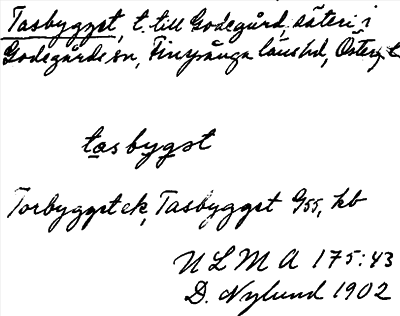 Tasbygget, t. till Godegård, säteri i
Godegårds sn, Finspånga läns hd, Österg.
tasbygst
Torbygget ek, Tasbygget 955, kb
N L M A 175:43
D. Nylund 1902